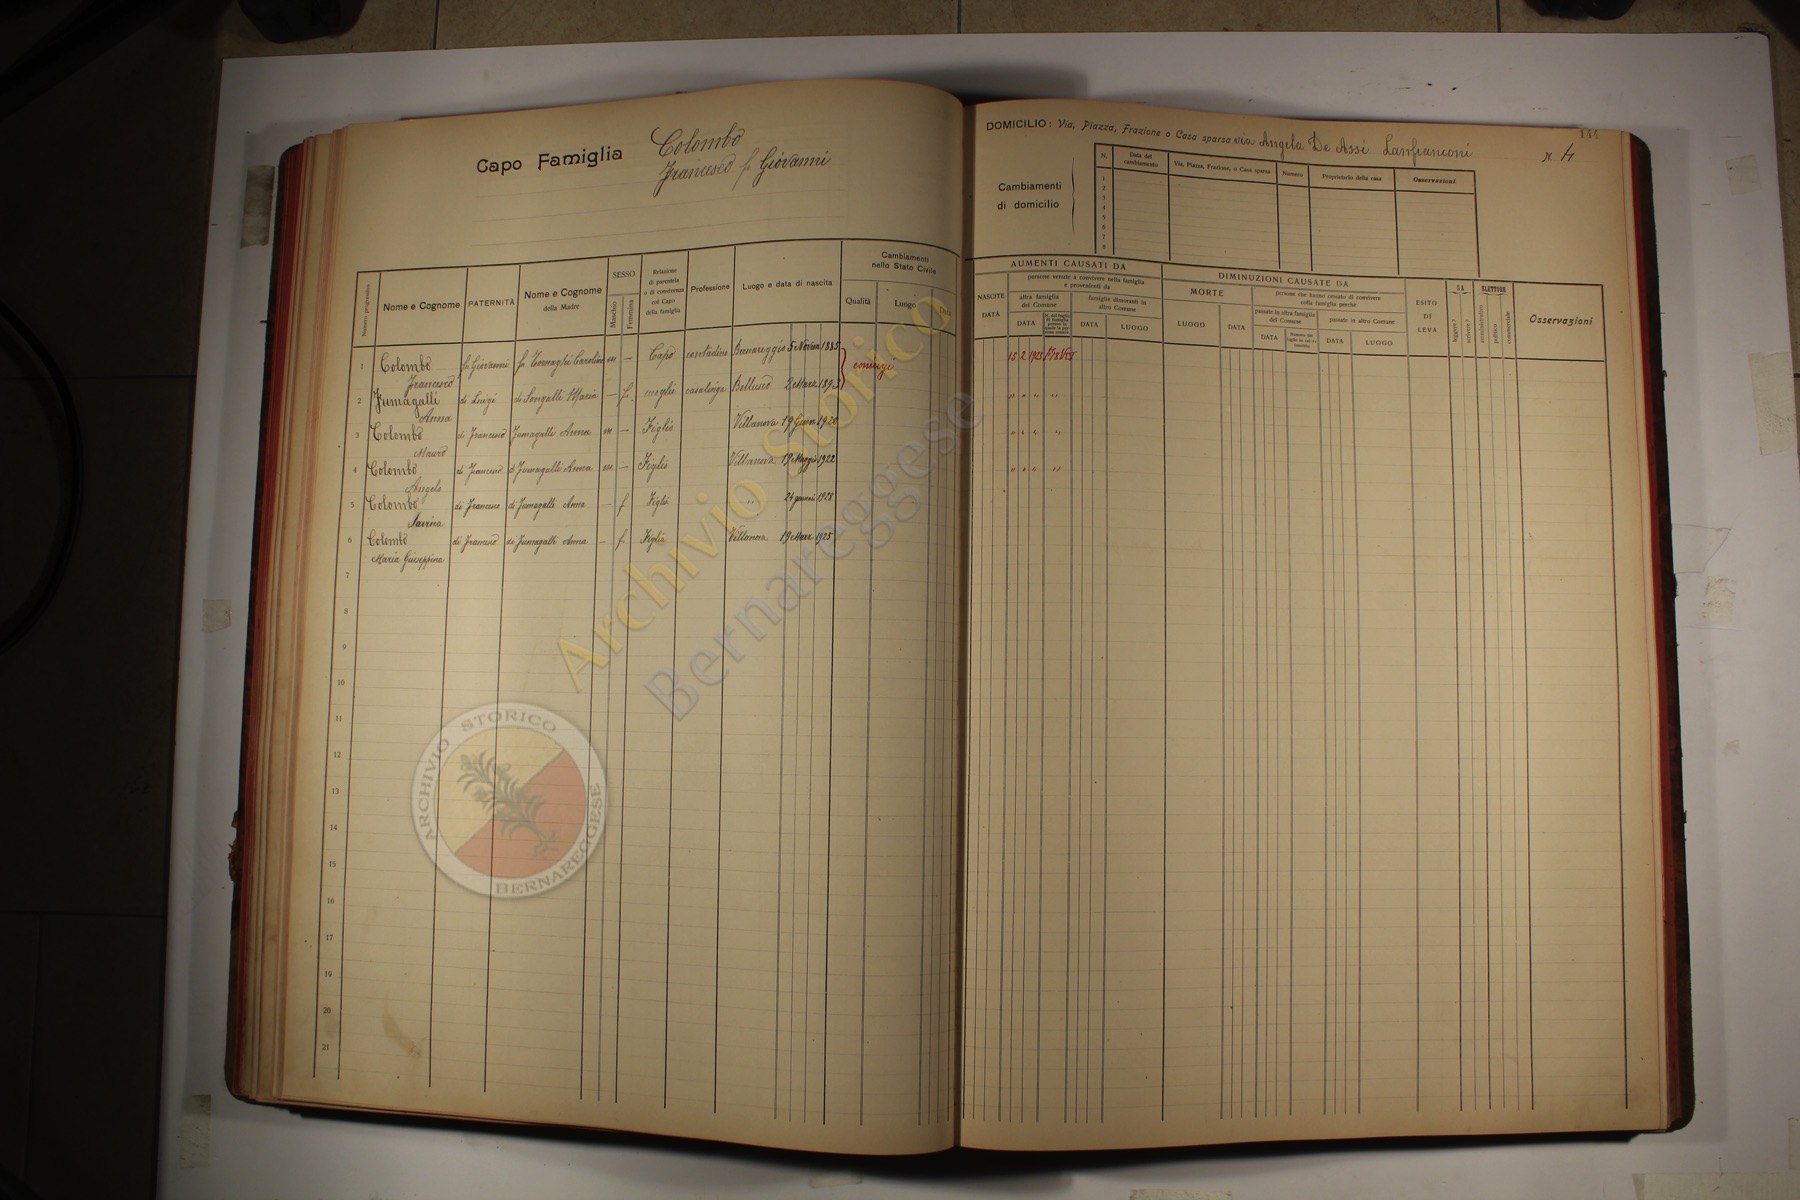 Capo Famiglia Colombo
Francesco f. Giovanni
DOMICILIO: Via, Piazza, Frazione o Casa sparsa via Angela De Assi Lanfranconi N. 4
144
Cambiamenti di domicilio
N. Data del cambiamento Via, Piazza, Frazione, o Casa sparsa Numero Proprietario della casa Osservazioni
1
2
3
4
5
6
7
8
Numero progressivo Nome e Cognome PATERNITÀ Nome e Cognome della Madre SESSO Maschio Femmina Relazione di parentela o di convivenza col Capo della famiglia Professione Luogo e data di nascita Cambiamenti nello Stato Civile Qualità Luogo Data
AUMENTI CAUSATI DA
NASCITE DATA
persone venute a convivere nella famiglia e provenienti da
altra famiglia del Comune
DATA
famiglie dimoranti in altro Comune
DATA LUOGO
DIMINUZIONI CAUSATE DA
MORTE
LUOGO DATA
persone che hanno cessato di convivere nella famiglia perchè
passate in altra famiglia del Comune
DATA
passate in altro Comune
DATA LUOGO
ESITO DI LEVA
SA leggere? scrivere?
ELETTORE amministrativo politico commerciale
Osservazioni
1 Colombo Francesco fu Giovanni fu Carolina m — Capo contadino Bernareggio 5 Novem 1885 coniugi 15 2 1925
2 Fumagalli Anna di Luigi di Sangalli Maria — f. moglie casalinga Bellusco 2 Marz 1893 " " " "
3 Colombo Mauro di Francesco Fumagalli Anna m — Figlio Villanova 19 Giun 1920 " " " "
4 Colombo Angelo di Francesco di Fumagalli Anna m — Figlio Villanova 19 Maggi 1922 " " " "
5 Colombo di Francesco di Fumagalli Anna — f Figlia " 24 gennai
6 Colombo Maria Giuseppina di Francesco di Fumagalli Anna — f. Figlia Villanova 19 Marz 1925
7
8
9
10
11
12
13
14
15
16
17
18
19
20
21
Archivio Storico
Bernareggese
ARCHIVIO STORICO BERNAREGGESE